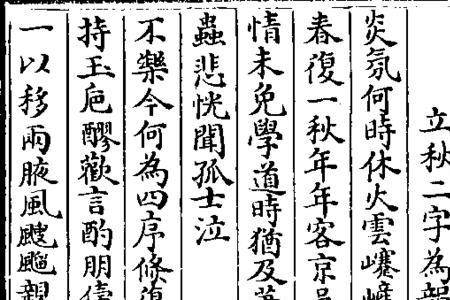 立秋二字為韻
炎氛何時休火雲嶬
春復一秋年年客京
情未免學道時猶及
蟲悲恍聞孤士泣
不樂今何為四序倏復
持玉卮醪歡言酌朋儔
一以移兩腋風颼飀親